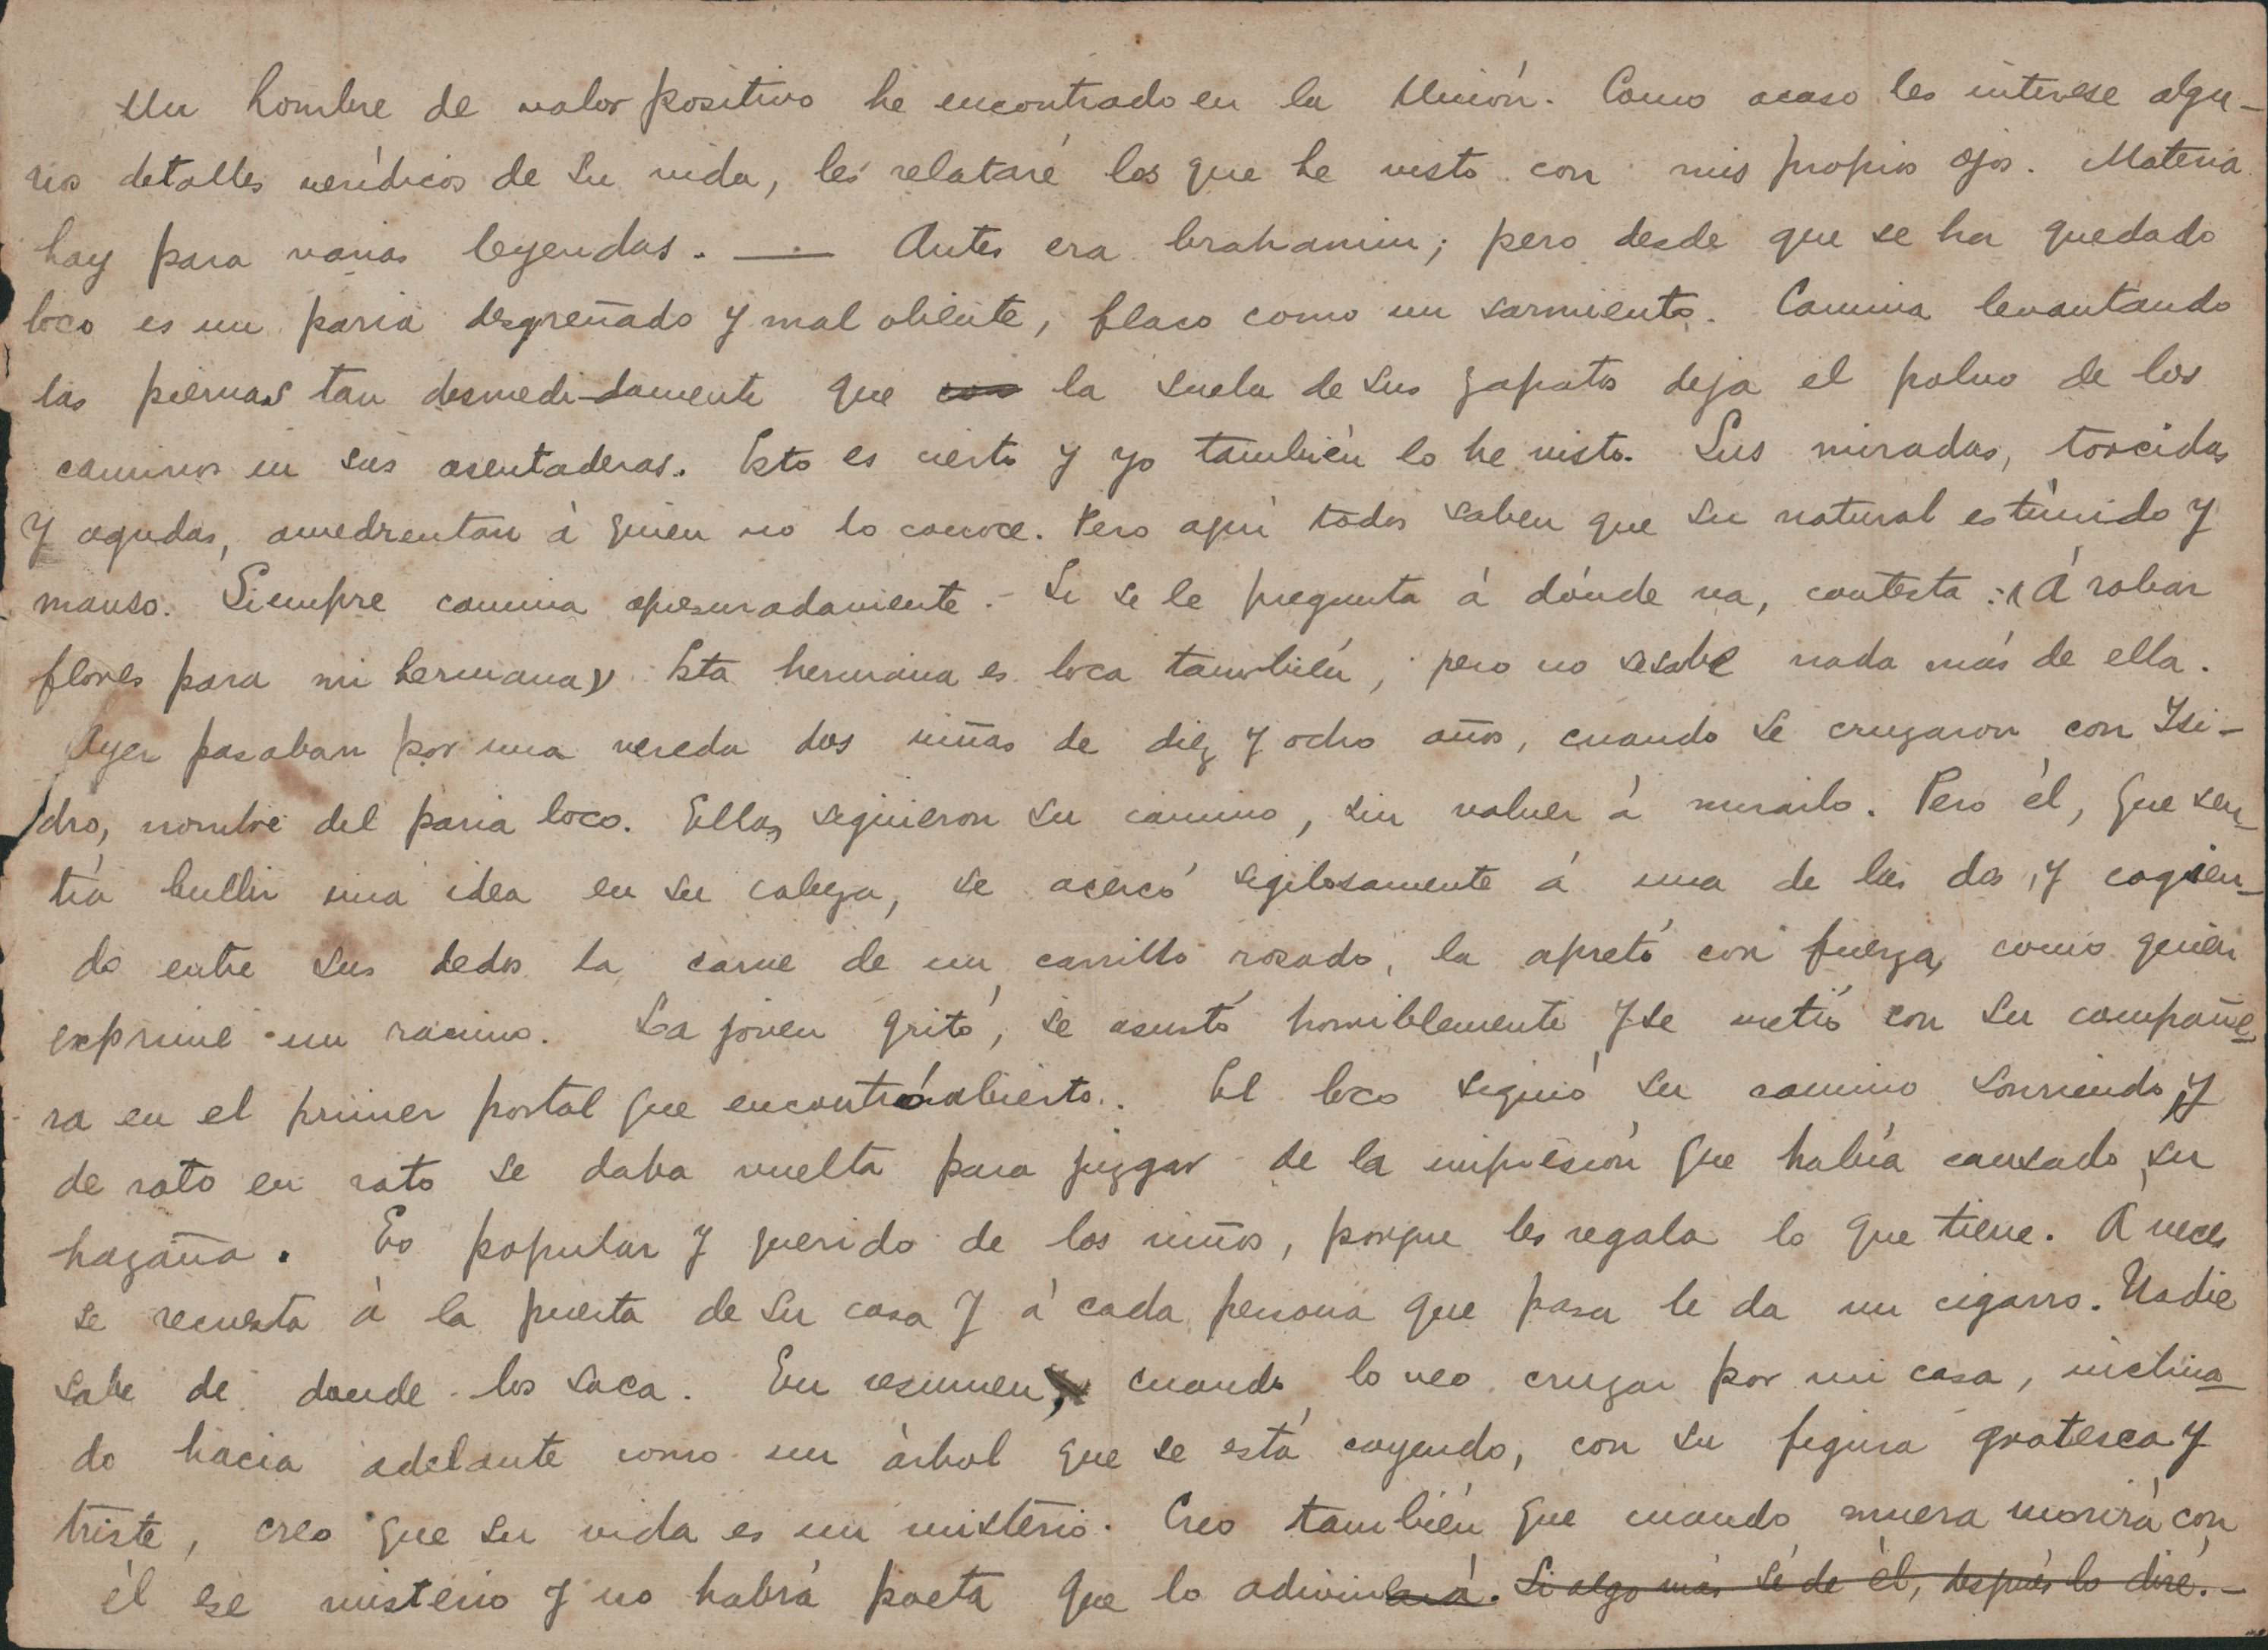 Un hombre de valor positivo he encontrado en la Unión. Como acaso les interese algu-
nos detalles verídicos de su vida, les relataré los que he visto con mis propios ojos. Materia
hay para varias leyendas. — Antes era brahamin; pero desde que se ha quedado
loco es un paria desgreñado y mal oliente, flaco como un sarmiento. Camina levantando
las piernas tan desmedidamente que con la suela de sus zapatos deja el polvo de los
caminos en sus asentaderas. Esto es cierto y yo también lo he visto. Sus miradas, torcidas
y agudas, amedrentan á quien no lo conoce. Pero aquí todos saben que su natural es tímido y
manso. Siempre camina apresuradamente. - Si se le pregunta á dónde va, contesta: «Á robar
flores para mi hermana» Esta hermana es loca también, pero no se sabe nada más de ella.
Ayer pasaban por una vereda dos niñas de diez y ocho años, cuando se cruzaron con Isi-
dro, nombre del paria loco. Ellas siguieron su camino, sin volver á mirarlo. Pero él, que sen-
tía bullir una idea en su cabeza, se acercó sigilosamente á una de las dos, y cogien-
do entre sus dedos la carne de un carrillo rosado, la apretó con fuerza, como quien
exprime un racimo. La joven gritó, se asustó horriblemente y se metió con su compañe-
ra en el primer portal que encontró abierto. El loco siguió su camino sonriendo, y
de rato en rato se daba vuelta para juzgar de la impresión que había causado su
hazaña. Es popular y querido de los niños, porque les regala lo que tiene. Á veces
se recuesta á la puerta de su casa y á cada persona que pasa le da un cigarro. Nadie
sabe de donde los saca. En resumen, cuando lo veo cruzar por mi casa, inclina-
do hacia adelante como un árbol que se está cayendo, con su figura grotesca y
triste, creo que su vida es un misterio. Creo también que cuando muera morirá con
él ese misterio y no habrá poeta que lo adivinará. Si algo más sé de él, después lo diré. -